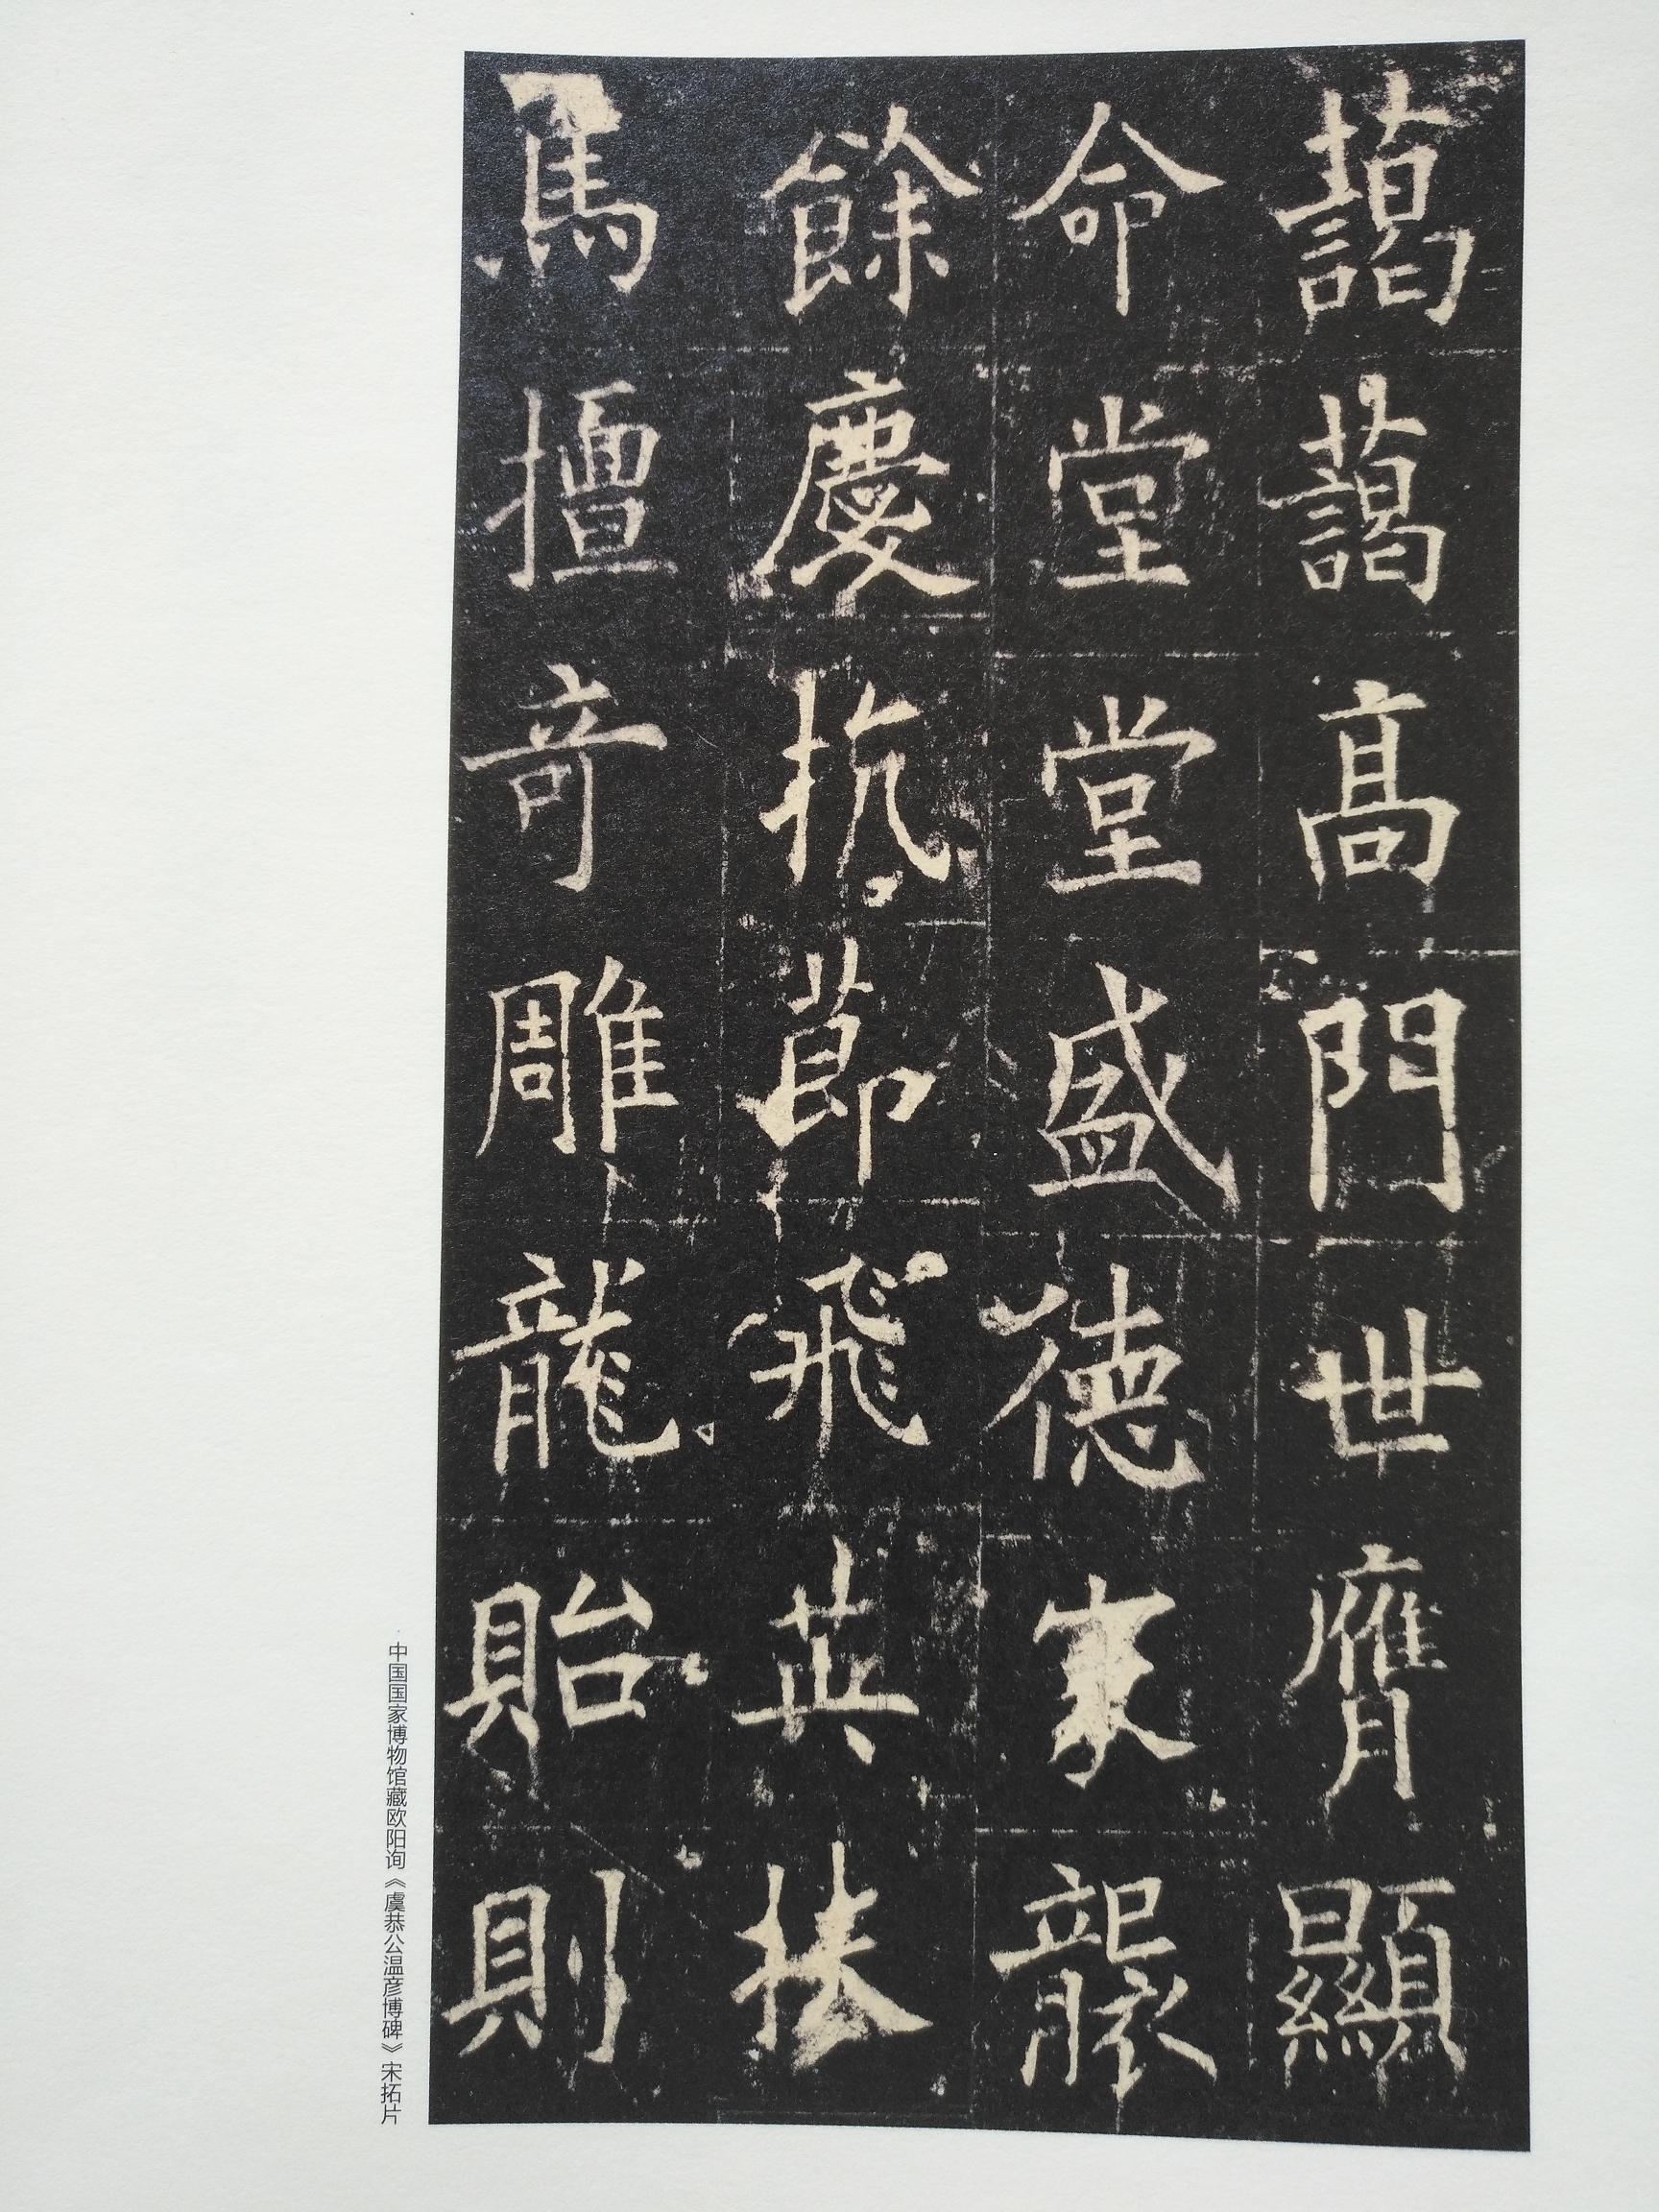 藹藹高門世膺顯
命堂堂盛德家襲
餘慶抗莭飛英扶
馬擅竒雕龍貽則
中国国家博物馆藏欧阳询《虞恭公温彦博碑》宋拓片